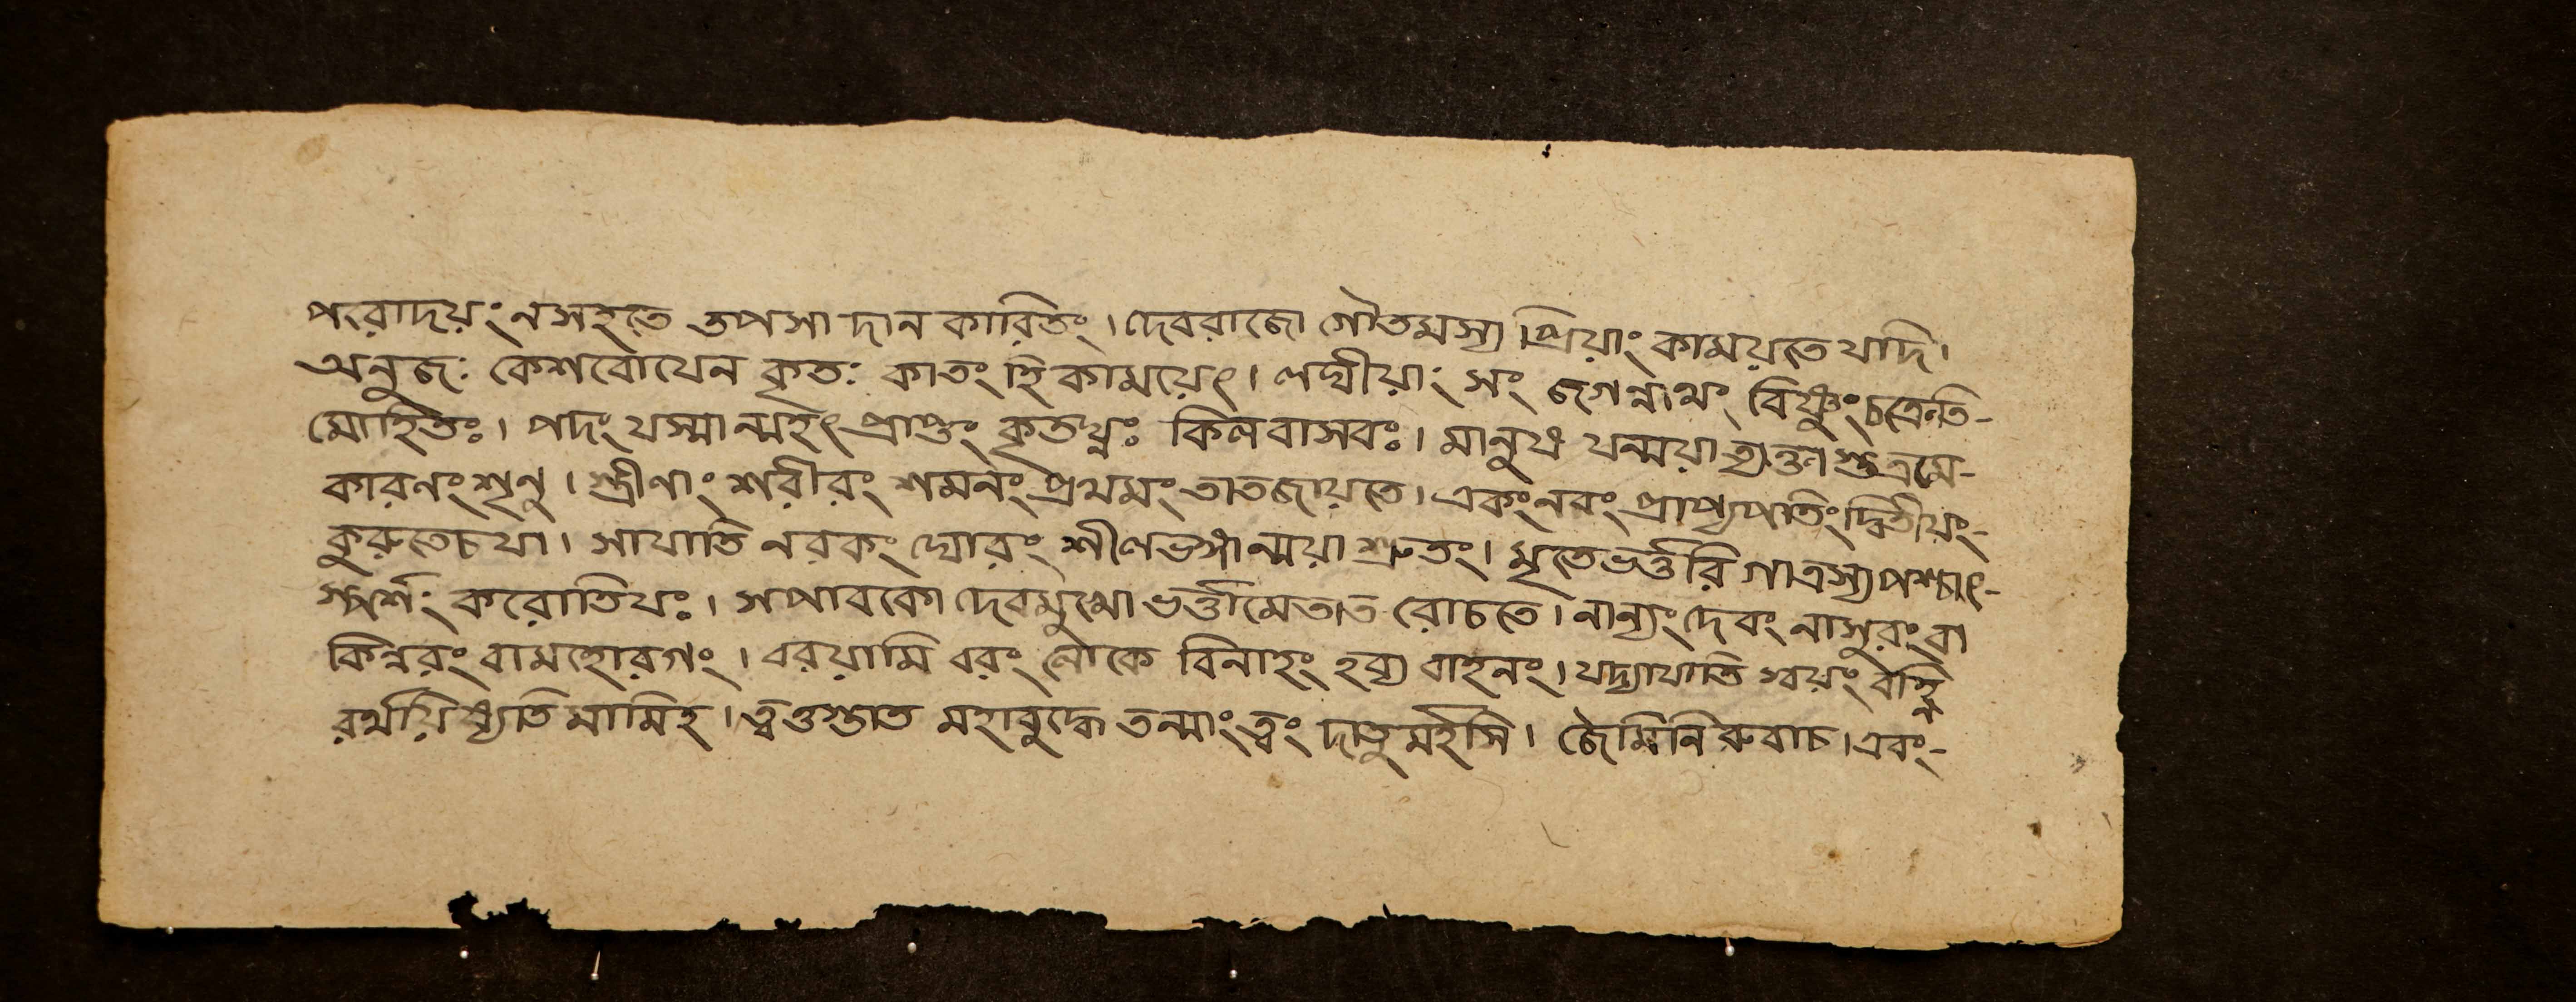 পরোদয়ং নসহতে তপসা দান কারিতং । দেবরাজো গৌতমস্য প্রিয়াং কাময়তে যদি ।
অনুজঃ কেশবোযেন কৃতঃ কাতং হি কাময়েৎ । লঘীয়াং সং জগন্নাথং বিষ্ণুংচক্রেতি-
মোহিতঃ । পদং যস্মান্মহৎ প্রাপ্তং কৃতঘ্নঃ কিলবাসবঃ । মানুষ যন্ময়া ত্যক্তা স্তত্রমে-
কারণং শৃনু । স্ত্রীণাং শরীরং শমনং প্রথমং তাতজায়তে । একংনরং প্রাপ্যপতিংদ্বিতীয়ং-
কুরুতেচযা । সাযাতি নরকং ঘোরং শীলভঙ্গান্ময়া শ্রুতং । মৃতেভর্ত্তরি গাত্রস্যপশ্চাৎ-
স্পর্শং করোতিযঃ । সপাবকো দেবমুখো ভর্ত্তামেতাত রোচতে । নান্যং দেবং নাসুরং বা
কিন্নরং বামহোরগং । বরয়ামি বরং লোকে বিনাহং হব্য বাহনং । যদ্যায়াতি স্বয়ং বহ্নি
রর্থয়িষ্যতি মামিহ । ত্বত্তস্তাত মহাবুদ্ধে তন্মাংত্বং দাতুমর্হসি । জৈমিনি রুবাচ । এবং-